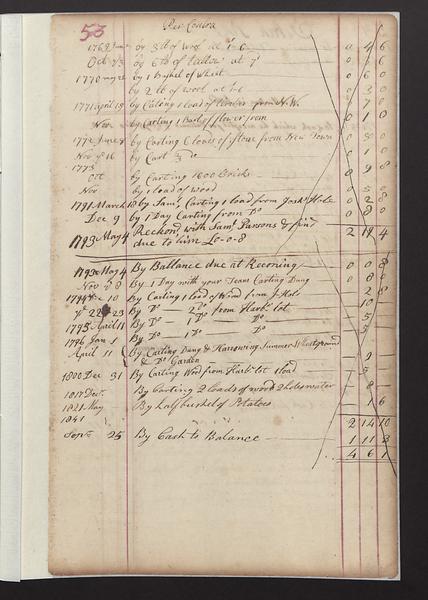 53 Per Contra
1769 June by 3 lb of wool at 1/6 0 4 6
Oct by 6 lb of tallow at 7d 0 3 6
1770 by 1 Bushel of Wheat 0 6 0
by 2 lb of wool at 1/6 0 3 0
1771 April 18 by Carting 1 load of from N.W. 0 7 0
Nov by Carting 1 Bar of flower from 0 1 0
1772 June by Carting of flour from New Town 0
Nov 16 by Cart Do 0 1 0
1773 Oct by Carting 1600 Bricks 0 9 8
Nov by 1 load of wood 0 5 0
1791 March 18 by Saml Carting 1 load from 0 2 8
Dec 9 by 1 Day Carting from Do 0 8 0
1793 May 4 Reckond with Saml Parsons & find
due to him £0-0-8 2 19 4
1793 May 4 By Ballance due at Reconing 0 0 8
Nov 8 By 1 Day with your Team Carting Dung 0 8
1794 10 By Carting 1 load of Wood from
22 & 23 By Do 2 Do from Harbr lot 10
1795 April 11 By Do 1 Do Do 5
1796 Jan 1 By Do 1 Do Do 5
April 11 By Carting Dung & Harrowing Summer
& Do Garden 9
1800 Dec 31 By Carting Wood from Harbr lot 1 load 5
1817 Dec By Carting 2 loads of wood 8
1821 May By half bushel of Potatoes 1 6
1841 2 14 10
Sept 25 By Cash to Balance 1 11 3
4 6 1